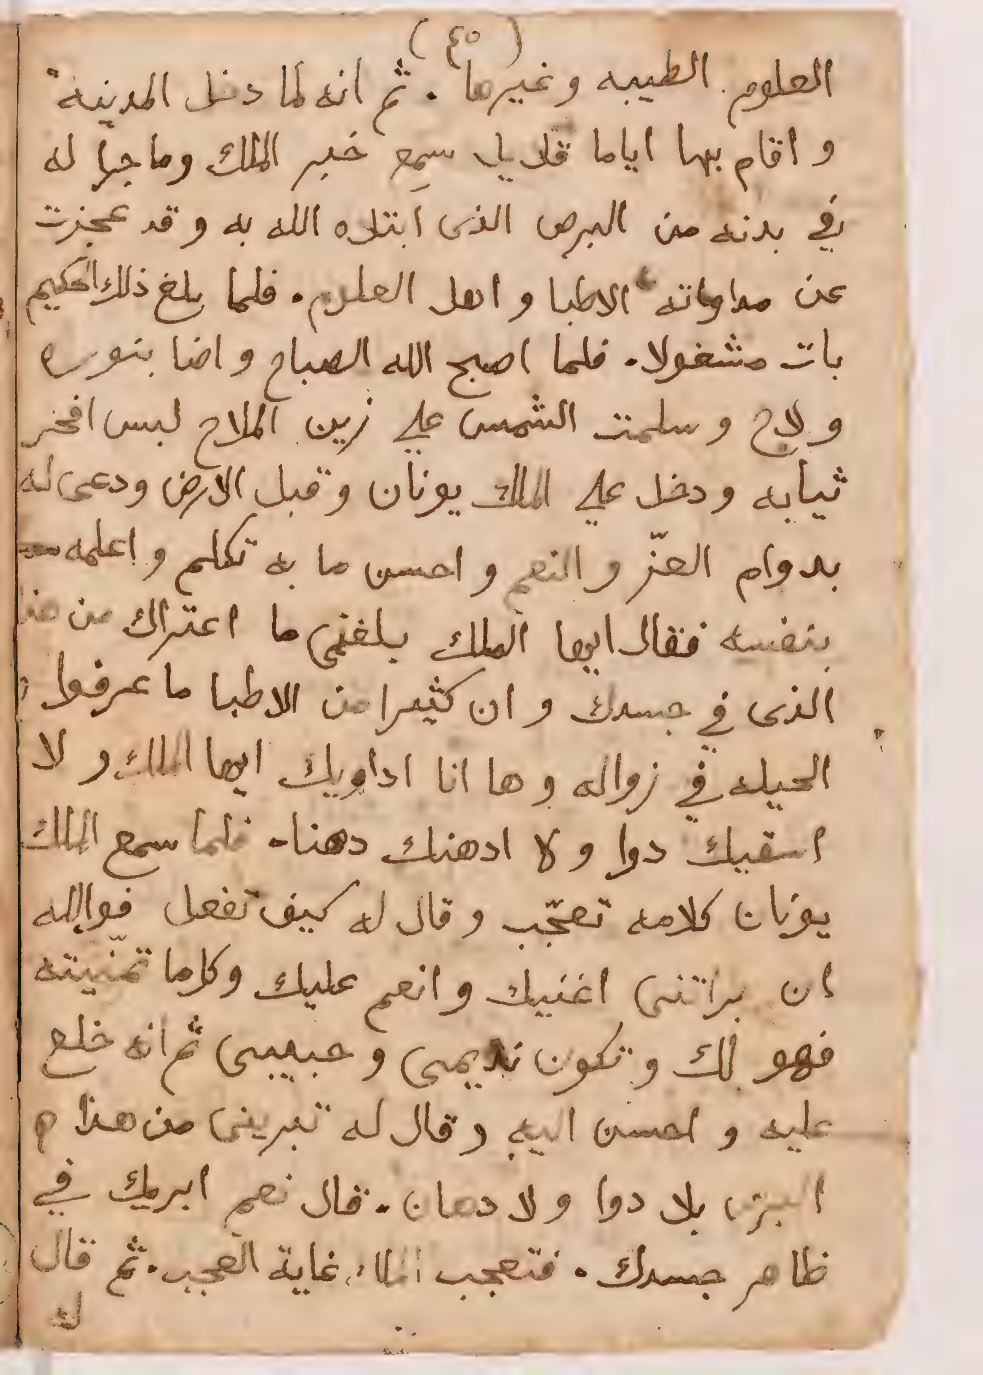 (٤٥)
العلوم الطيبه وغيرها . ثم انه لما دخل المدينة
و اقام بها اياما قلايل سمع خبر الملك وما جرا له
في بدنه من البرص الذى ابتلاه الله به و قد عجزت
عن مداواته الاطبا و اهل العلوم . فلما بلغ ذلك الحكيم
بات مشغولا . فلما اصبح الله الصباح و اضا بنوره
و لاح و سلمت الشمس علي زين الملاح لبس افخر
ثيابه ودخل علي الملك يونان و قبل الارض ودعى له
بدوام العزّ و النعم و احسن ما به تكلم و اعلمه
بنفسه فقال ايها الملك بلغنى ما اعتراك من هذا
الذى في جسدك و ان كثيرا من الاطبا ما عرفوا
الحيله في زواله و ها انا اداويك ايها الملك و لا
اسقيك دوا و لا ادهنك دهنا . فلما سمع الملك
يونان كلامه تعجّب و قال له كيف تفعل فوالله
ان براتنى اغنيك و انعم عليك وكلما تمنّيته
فهو لك و تكون نديمى و حبيبى ثم انه خلع
عليه و احسن اليه و قال له تبرينى من هذا
البرص بلا دوا و لا دهان . قال نعم ابريك في
ظاهر جسدك . فتعجب الملك غاية العجب . ثم قال
له